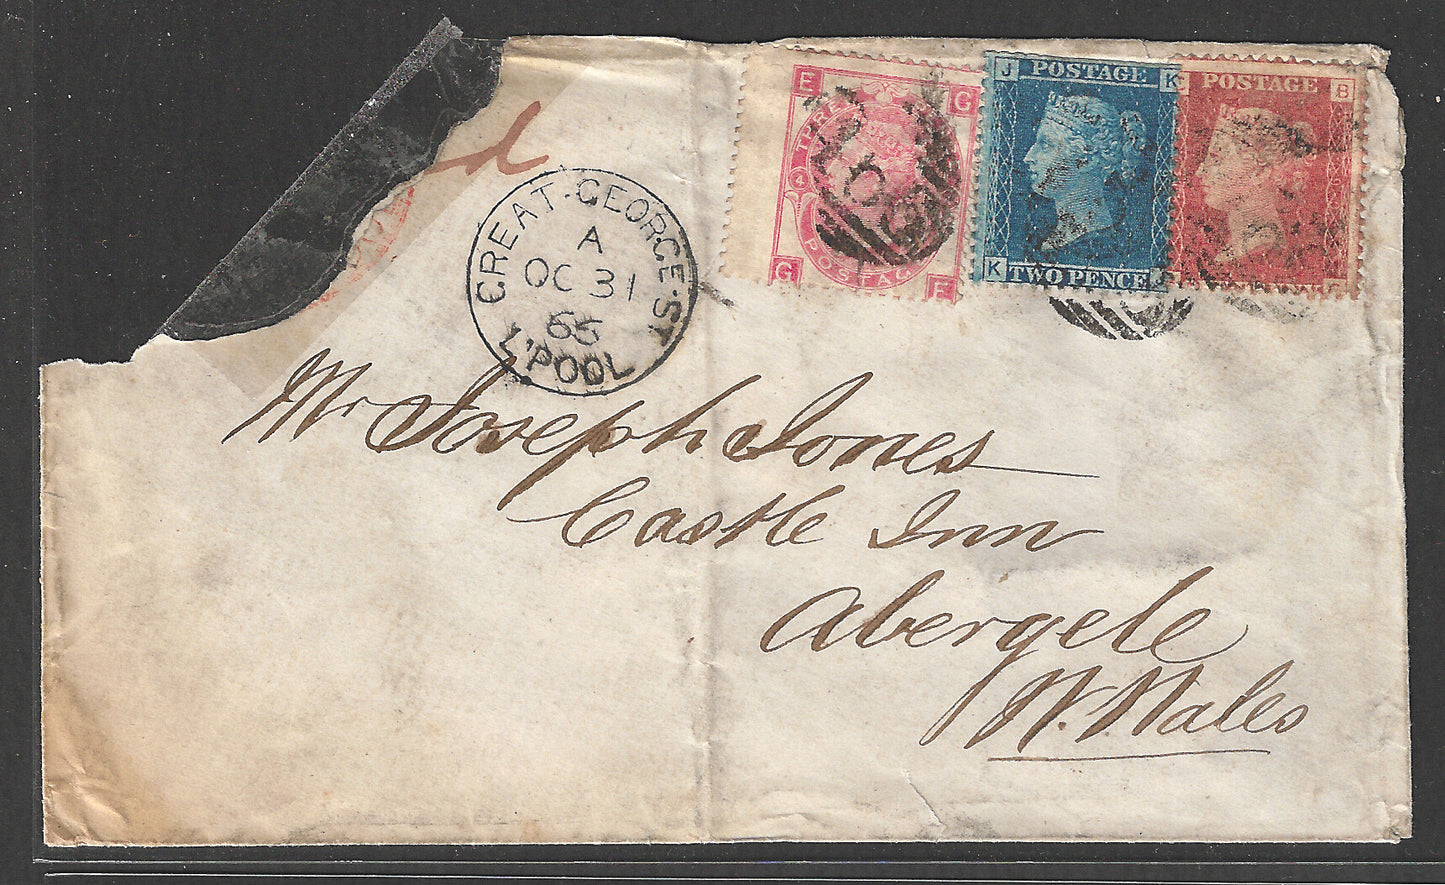 E G
THRE
4
POSTAG
G E
J POSTAGE K
K TWO PENCE J
POSTAGE B
d
GREAT·GEORGE·ST
A
OC 31
66
L'POOL
Mr Joseph Jones
Castle Inn
Abergele
N. Wales